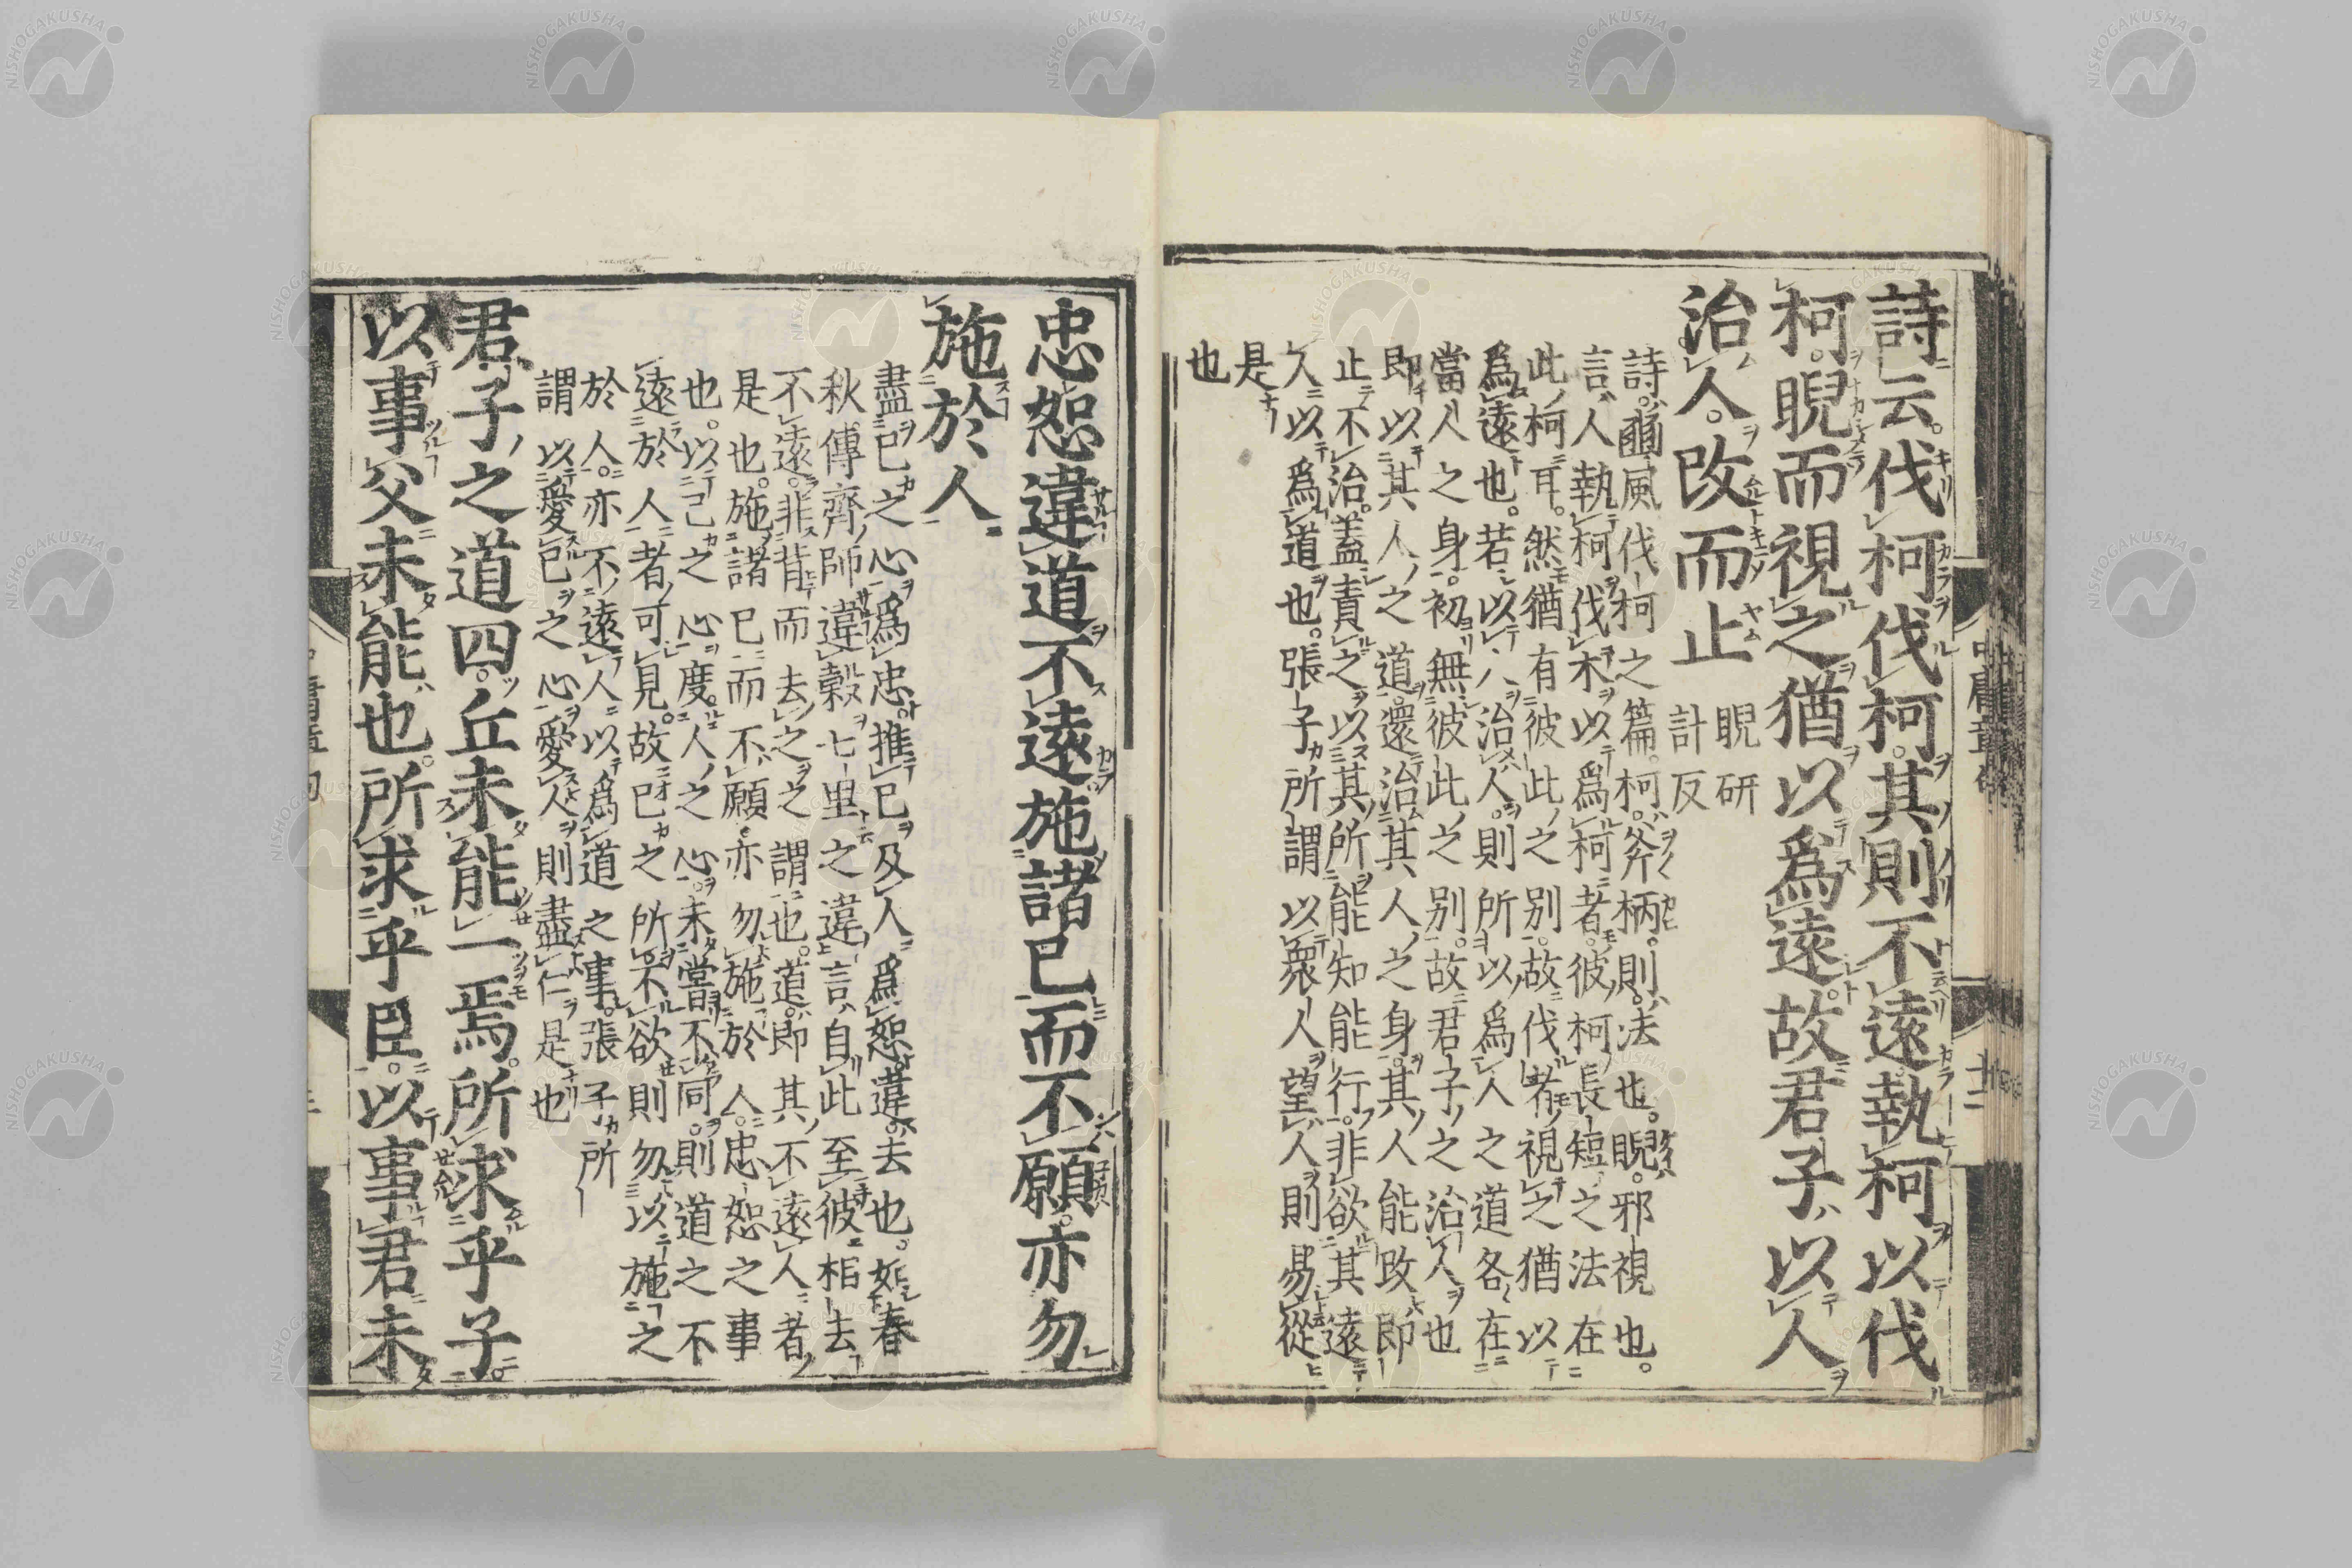 詩云伐柯伐柯其則不遠執柯以伐
柯睨而視之猶以爲遠故君子以人
治人改而止
睨研
計反
詩豳風伐柯之篇柯斧柄則法也睨邪視也
言人執柯伐木以爲柯者彼柯長短之法在
此柯耳然猶有彼此之別故伐者視之猶以
爲遠也若以人治人則所以爲人之道各在
當人之身初無彼此之別故君子之治人也
即以其人之道還治其人之身其人能改即
止不治蓋責之以其所能知能行非欲其遠
人以爲道也張子所謂以衆人望人則易從
是
也
忠恕違道不遠施諸己而不願亦勿
施於人
盡己之心爲忠推己及人爲恕違去也如春
秋傳齊師違穀七里之違言自此至彼相去
不遠非背而去之之謂也道即其不遠人者
是也施諸己而不願亦勿施於人忠恕之事
也以己之心度人之心未嘗不同則道之不
遠於人者可見故己之所不欲則勿以施之
於人亦不遠人以爲道之事張子所
謂以愛己之心愛人則盡仁是也
君子之道四丘未能一焉所求乎子
以事父未能也所求乎臣以事君未